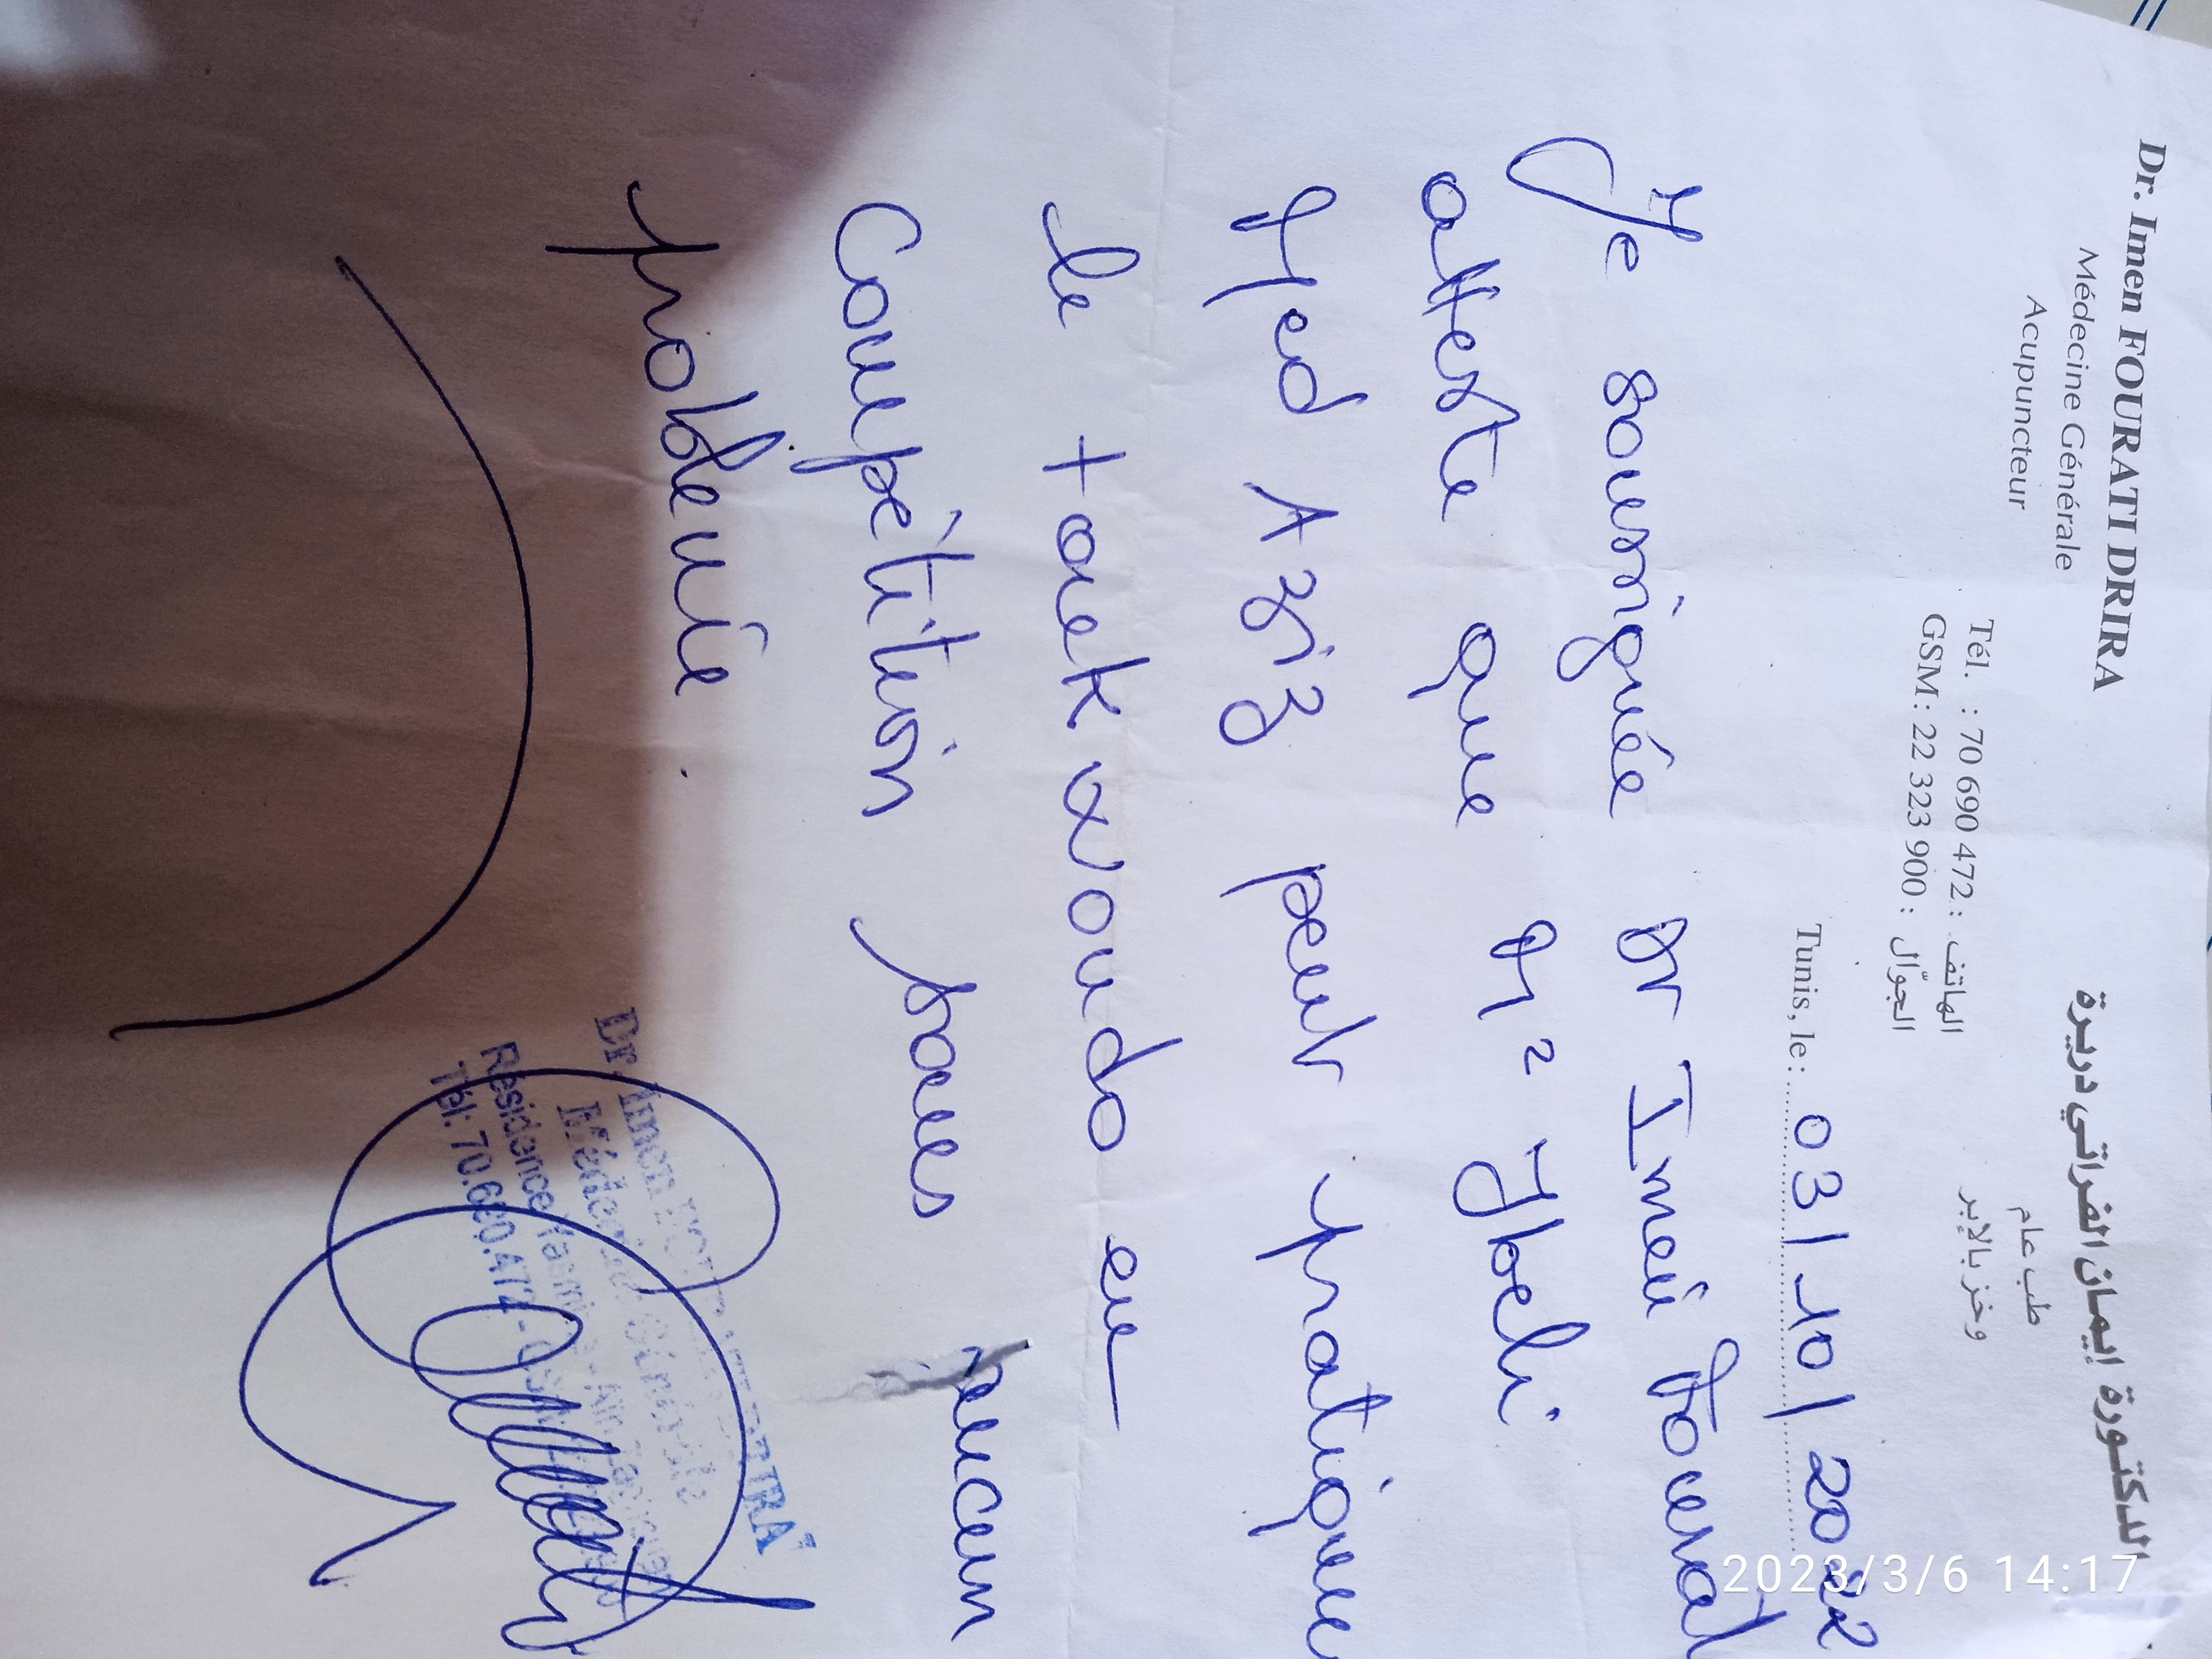 Dr. Imen FOURATI DRIRA
Médecine Générale
Acupuncteur
الدكتورة إيمان الفراتي دريرة
طب عام
وخز بالإبر
Tél. : 70 690 472 : الهاتف
GSM : 22 323 900 : الجوّال
Tunis, le : 03/10/2022
Je soussignée Dr Imen Fourati
atteste que Mr Jbeli
Med Aziz peut pratiquer
le taekwondo en
Compétition sans aucun
problème.
Dr. Imen DRIRA
Médecine Générale
Résidence
Tél: 70.690.472
2023/3/6 14:17